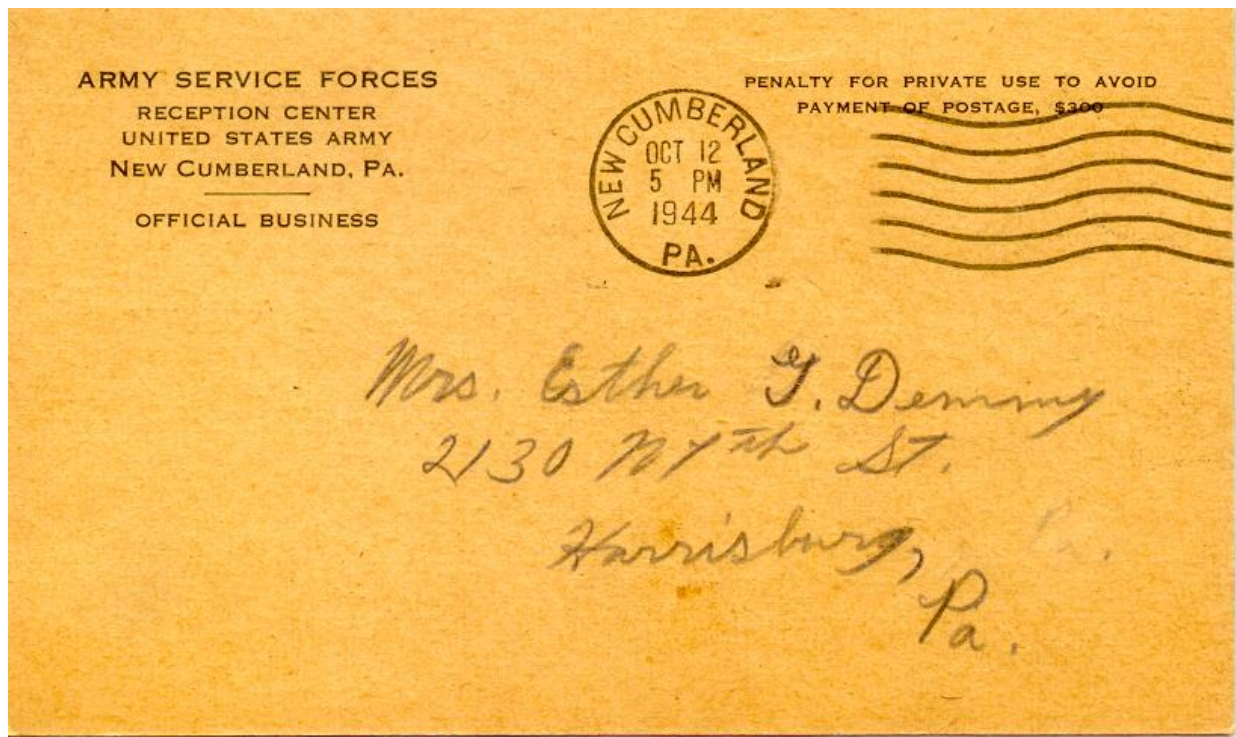 ARMY SERVICE FORCES
RECEPTION CENTER
UNITED STATES ARMY
NEW CUMBERLAND, PA.
OFFICIAL BUSINESS
NEW CUMBERLAND
OCT 12
5 PM
1944
PA.
PENALTY FOR PRIVATE USE TO AVOID
PAYMENT OF POSTAGE, $300
Mrs. Esther G. Demmy
2130 N 7th St.
Harrisburg, Pa.
Pa.